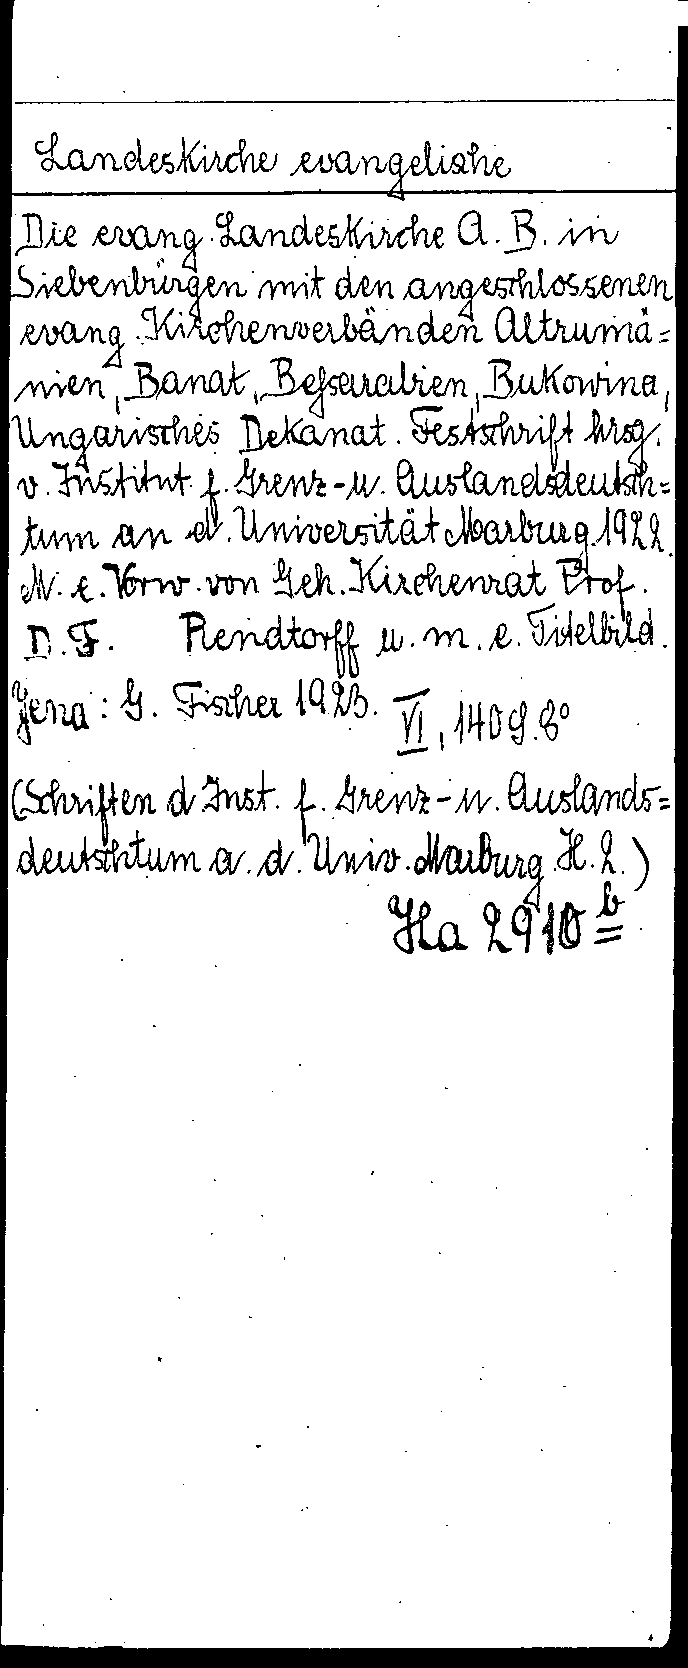 Landeskirche evangelische
Die evang. Landeskirche A. B. in
Siebenbürgen mit den angeschlossenen
evang. Kirchenverbänden Altrumä=
nien, Banat, Beßarabien, Bukowina,
Ungarisches Dekanat. Festschrift hrsg.
v. Institut f. Grenz- u. Auslandsdeutsch=
tum an d. Universität Marburg. 1922.
M. e. Vorw. von Geh. Kirchenrat Prof.
D. F. Rendtorff u. m. e. Titelbild.
Jena: G. Fischer 1923. VI, 140 S. 8°
(Schriften d. Inst. f. Grenz- u. Auslands=
deutschtum a. d. Univ. Marburg. H. 2.)
Ha 2910 b